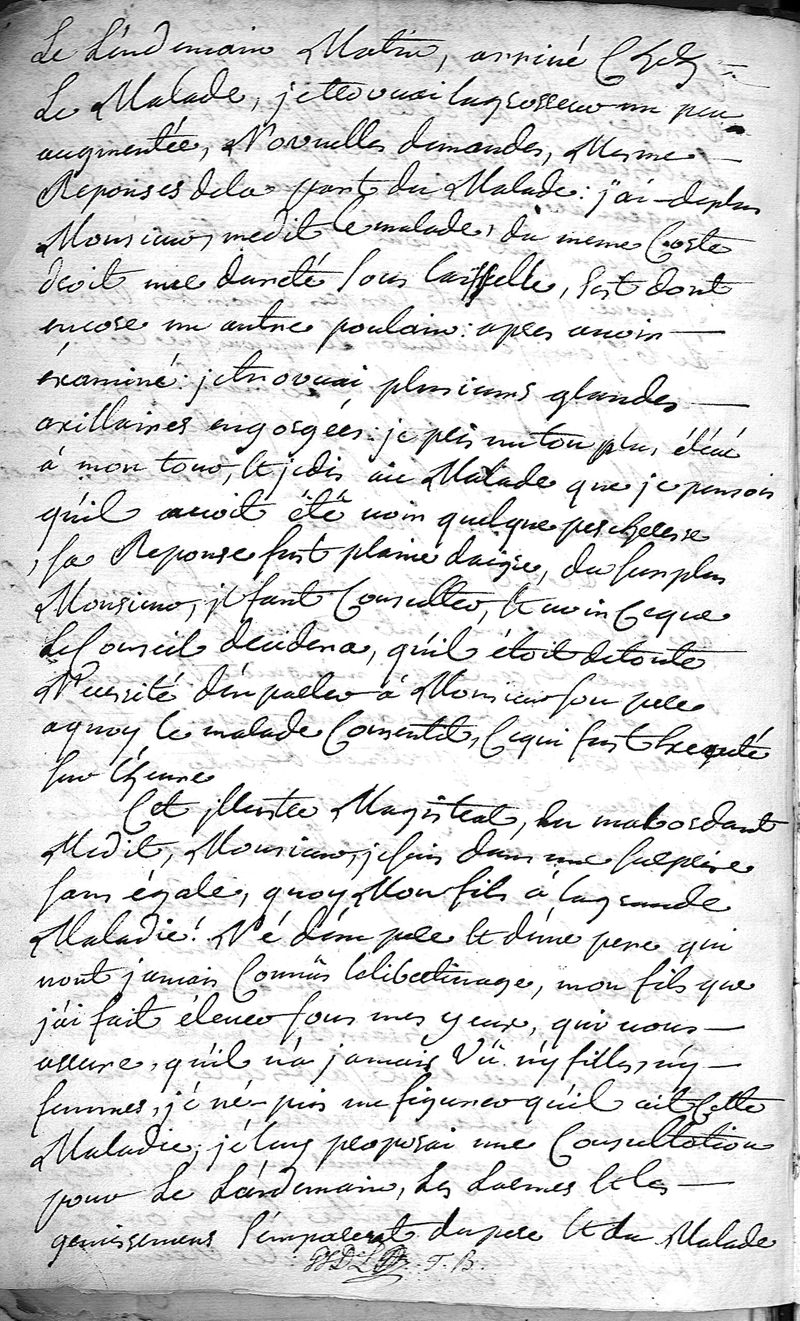 Le Léndemain Matin, arrivé Chez =
Le Malade, je trouvai la grosseur un peu
augmentée, Nouvelles demandes, Mesme —
Reponses de la part du Malade : j'ai de plus
Monsieur, me dit le malade, du meme Coste
droit une dureté sous l'aisselle, sest dont
encore un autre poulain : apres avoir —
éxaminé : je trouvai plusieurs glandes —
axillaires engorgées : je pris un ton plus élévé
à mon tour, et je dis au Malade que je pensois
qu'il avoit été voir quelque pescheresse
, sa Reponse fust plaine daigre, du surplus
Monsieur, il faut Consulter, et voir Ceque
Le Conseil decidera, qu'il étoit de toute
Necessité d'en parler à Monsieur son pere
aquoy le malade Consentit, Cequi fust Exequté
sur l'heure
Cet illustre Magistrat, en mabordant
Me dit, Monsieur, je suis dans une surprise
sans égale, quoy Mon fils à la grande
Maladie ! Né d'un pere et d'une mere qui
nont jamais Connûs le libertinage, mon fils que
j'ai fait élever sous mes yeux, qui vous —
assure, qu'il n'a jamais Vû n'y filles, n'y —
femmes, jé né puis me figurer qu'il ait Cette
Maladie ; jé leurs proposai une Consultation
pour Le Léndemain, Les Larmes et les —
gemissemens s'emparerent du pere et du Malade
T. B.